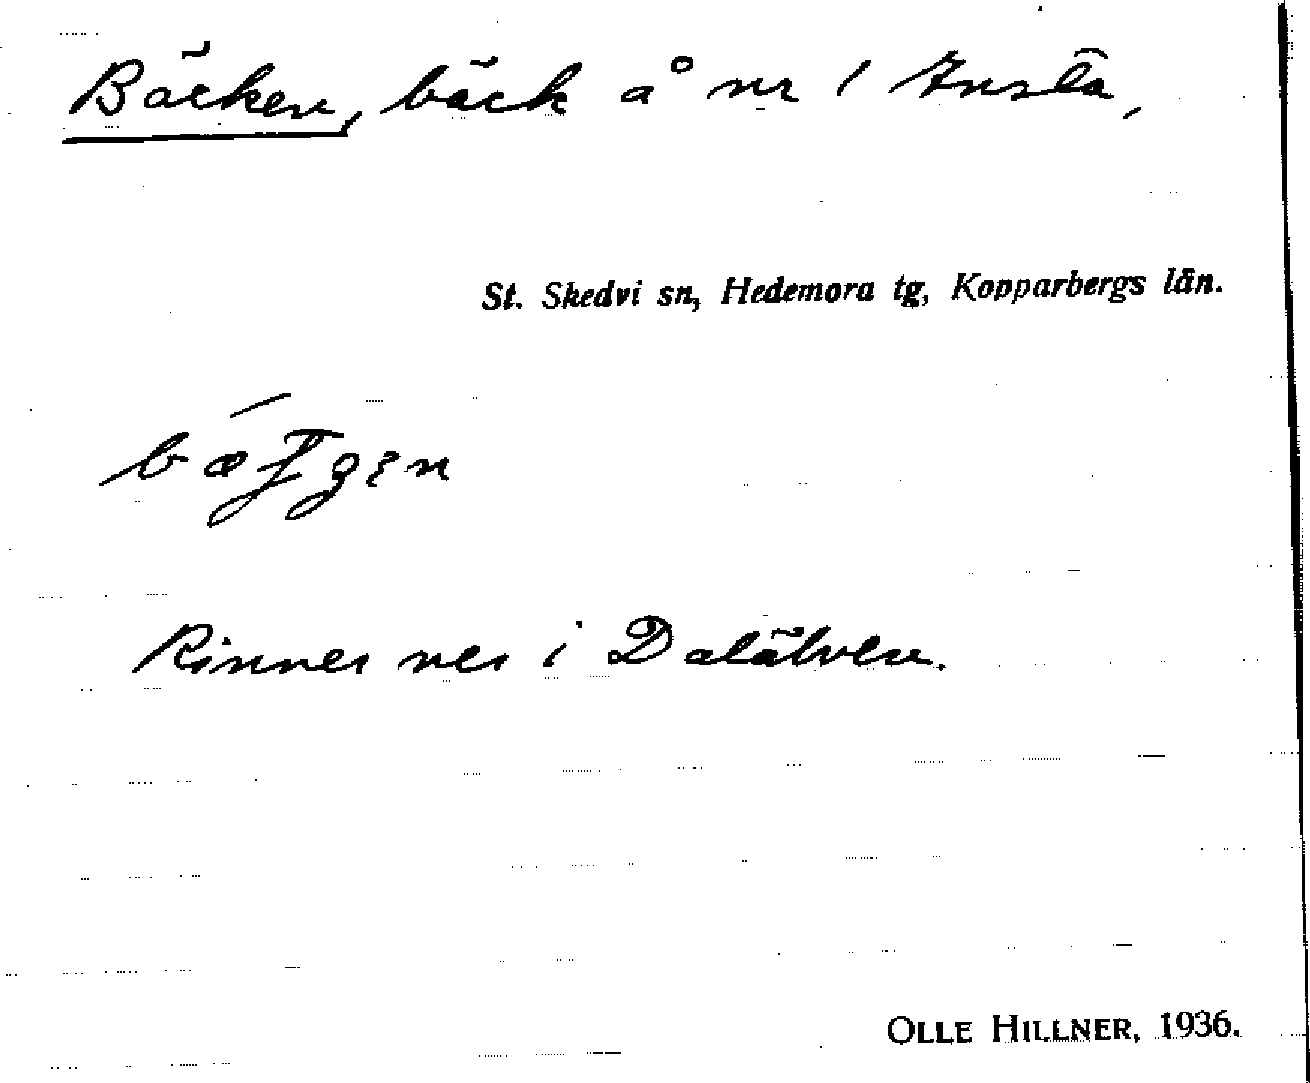 Bäcken, bäck å nr 1 Knsta,
St. Skedvi sn, Hedemora tg, Kopparbergs län.
Rinner ner i Dalälven.
OLLE HILLNER, 1936.